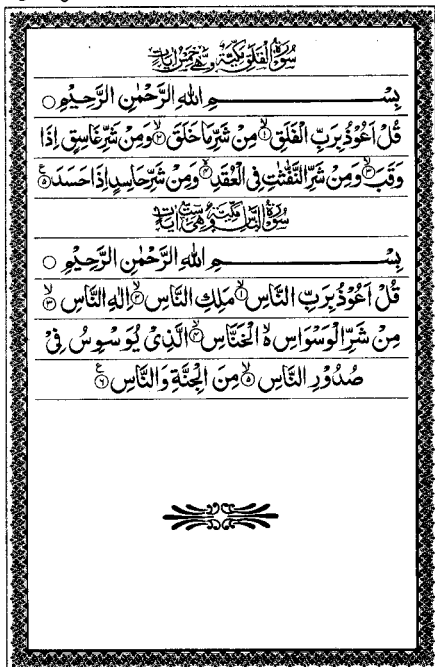 سُوْرَةُ الْفَلَقِ مَكِّيَّةٌ وَّهِيَ خَمْسُ اٰيَاتٍ
بِسْــــــــــــمِ اللهِ الرَّحْمٰنِ الرَّحِيْمِ ○
قُلْ اَعُوْذُ بِرَبِّ الْفَلَقِ ۙ﴿۱﴾ مِنْ شَرِّ مَا خَلَقَ ۙ﴿۲﴾ وَمِنْ شَرِّ غَاسِقٍ اِذَا
وَقَبَ ۙ﴿۳﴾ وَمِنْ شَرِّ النَّفّٰثٰتِ فِي الْعُقَدِ ۙ﴿۴﴾ وَمِنْ شَرِّ حَاسِدٍ اِذَا حَسَدَ ﴿۵﴾ ع
سُوْرَةُ النَّاسِ مَكِّيَّةٌ وَّهِيَ سِتُّ اٰيَاتٍ
بِسْــــــــــــمِ اللهِ الرَّحْمٰنِ الرَّحِيْمِ ○
قُلْ اَعُوْذُ بِرَبِّ النَّاسِ ۙ﴿۱﴾ مَلِكِ النَّاسِ ۙ﴿۲﴾ اِلٰهِ النَّاسِ ۙ﴿۳﴾
مِنْ شَرِّ الْوَسْوَاسِ ۵ۙ الْخَنَّاسِ ۙ﴿۴﴾ الَّذِيْ يُوَسْوِسُ فِيْ
صُدُوْرِ النَّاسِ ۙ﴿۵﴾ مِنَ الْجِنَّةِ وَالنَّاسِ ﴿۶﴾ ع